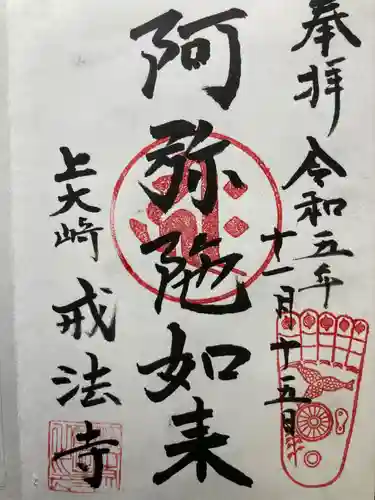 奉拝 令和五年
十一月十五日
阿弥陀如来
上大崎 戒法寺